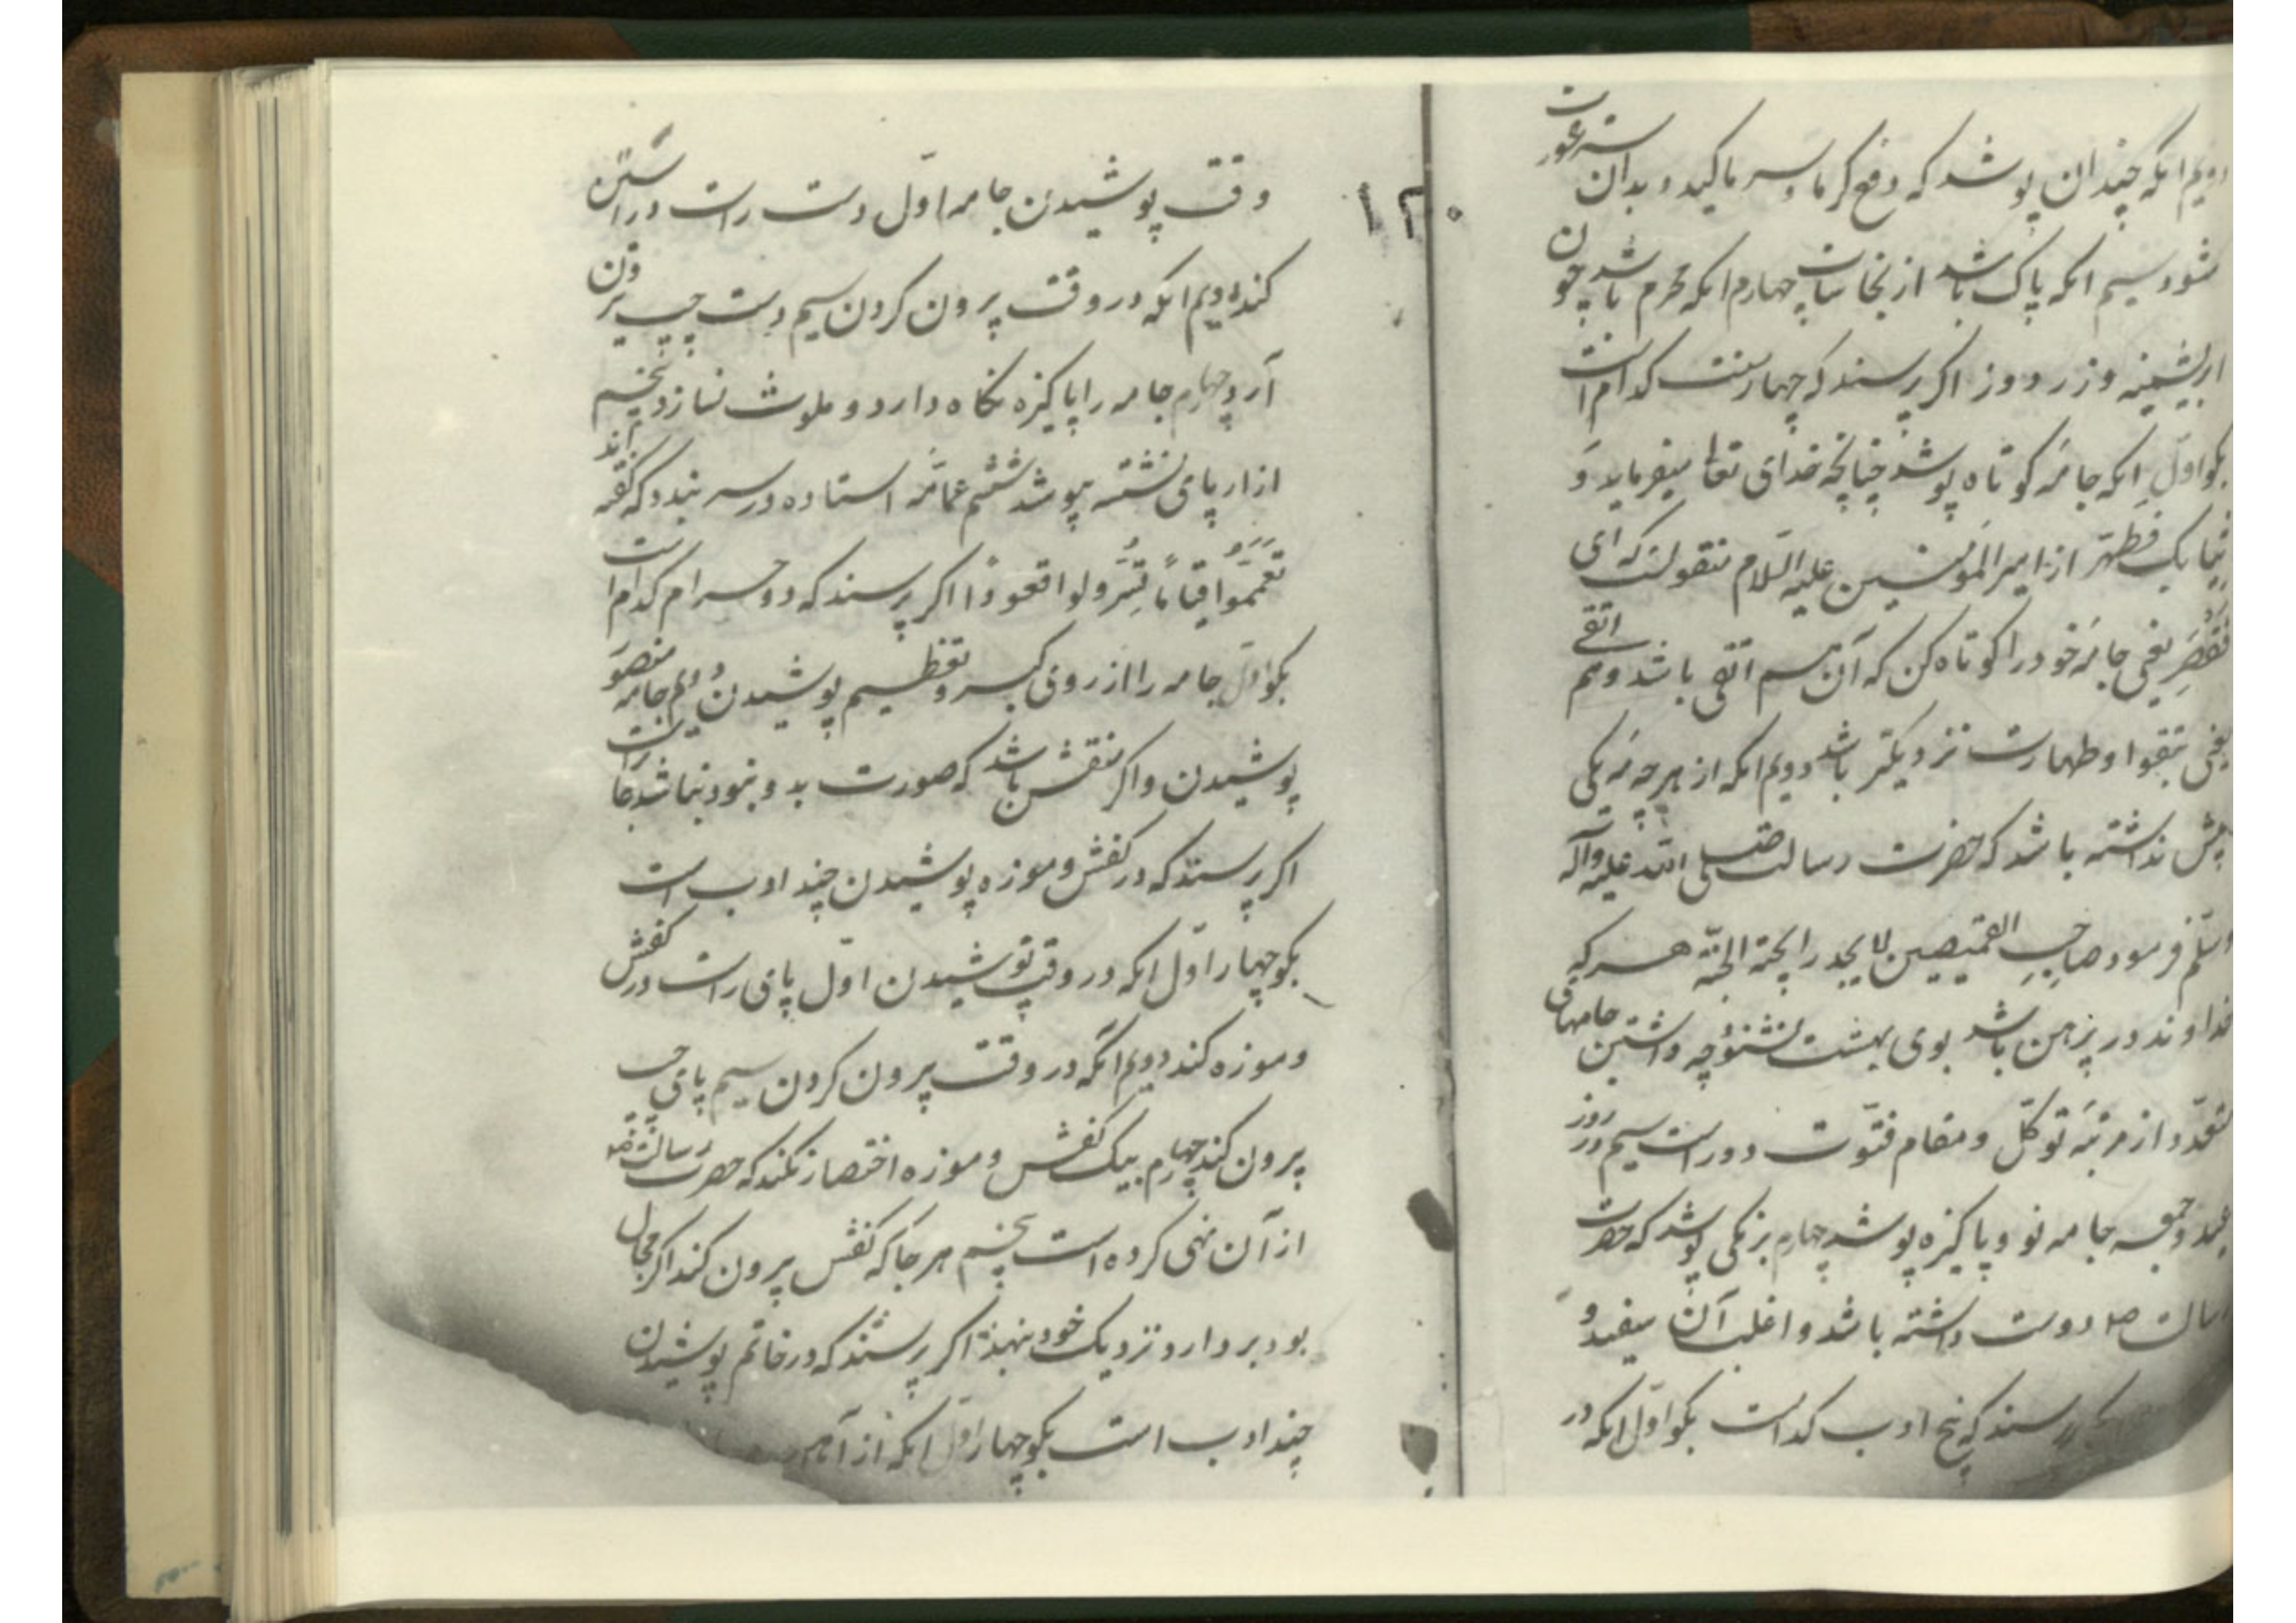 دویم انکه چندان پوشد که دفع کرما و سرما کند و بدان ستر عورت
شود سیم انکه پاک باشد از نجاسات چهارم انکه محرم باشد چون
ابریشمینه و زردوز اکر پرسند که چهار سنت کدام است
بکو اول انکه جامه کوتاه پوشد چنانچه خدای تعالی میفرماید وَ
ثیابک فطهّر از امیر المؤمنین علیه السّلام منقولست که ای
فقصّر یعنی جامهٔ خود را کوتاه کن که آن هم اتقی باشد و هم انقی
یعنی بتقوا و طهارت نزدیکتر باشد دویم انکه از هر جامه یکی
پیش نداشته باشد که حضرت رسالت صلی الله علیه وآله
وسلّم فرمود صاحب القمیصین لا یجد رایحة الجنّة هر که
خداوند دو پیرهن باشد بوی بهشت نشنود چه داشتن جامهای
متعدّد از مرتبهٔ توکّل و مقام فتوّت دور است سیم در روز
عید و جمعه جامه نو و پاکیزه پوشد چهارم برنکی پوشد که حضرت
رسالت صه دوست داشته باشد و اغلب آن سفید و
پرسند که پنج ادب کدامست بکو اول انکه در
۱۲۰
وقت پوشیدن جامه اوّل دست راست در آستین
کند دویم انکه در وقت بیرون کردن سیم دست چپ بیرون
آرد چهارم جامه را پاکیزه نکاه دارد و ملوث نسازد پنجم
ازار پای نشسته بپوشد ششم عمامه استاده در سر بندد که کفته اند
تَعَمَّمُوا قیاماً تسرولوا قعوداً اکر پرسند که دو حرام کدام است
بکو اوّل جامه را از روی کبر و تعظیم پوشیدن دویم جامه منصور
پوشیدن و اکر منقش باشد که صورت بدو نبود نباشد جایز است
اکر پرسند که در کفش و موزه پوشیدن چند ادب است
بکو چهار اوّل انکه در وقت پوشیدن اوّل پای راست در کفش
و موزه کند دویم انکه در وقت بیرون کردن سیم پای چپ
بیرون کند چهارم بیک کفش و موزه اختصار نکند که حضرت رسالت صه
از آن نهی کرده است پنجم هر جا که کفش بیرون کند اکر مجال
بود بردارد و نزدیک خود بنهد اکر پرسند که در خاتم پوشیدن
چند ادب است بکو چهار اوّل انکه از